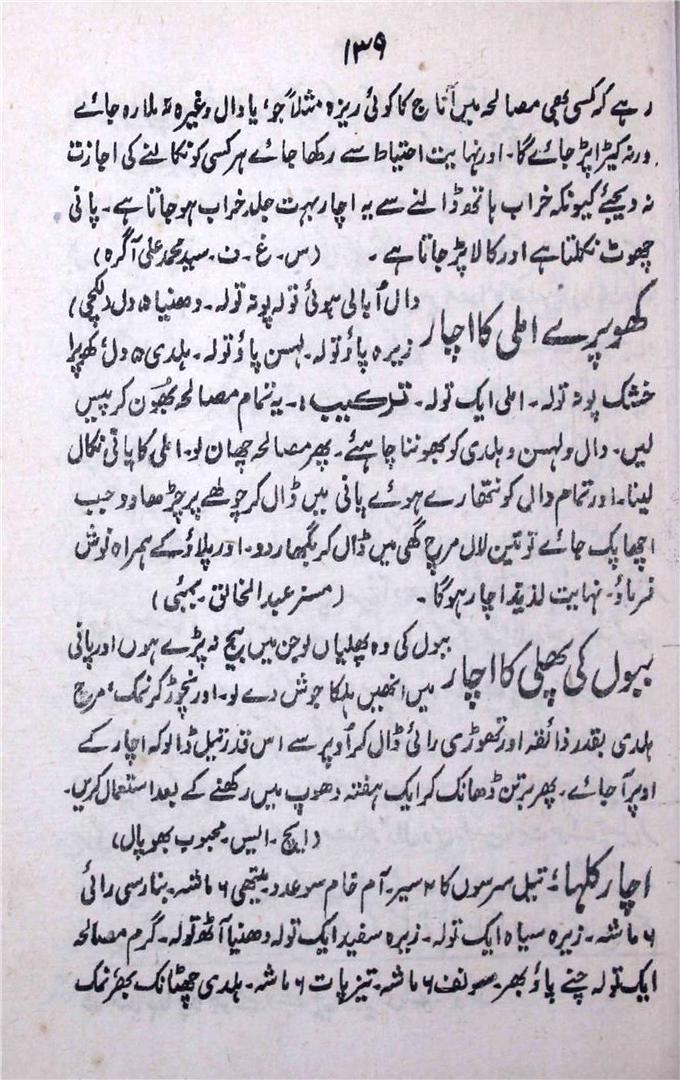 ۱۳۹
رہے کہ کسی بھی مصالحہ میں اناج کا کوئی ریزہ مثلاً جو، یا دال وغیرہ نہ ملا رہ جائے
ورنہ کیڑا پڑ جائے گا۔ اور نہایت احتیاط سے رکھا جائے ہر کسی کو نکالنے کی اجازت
نہ دیجئے کیونکہ خراب ہاتھ ڈالنے سے یہ اچار بہت جلد خراب ہو جاتا ہے۔ پانی
چھوٹ نکلتا ہے اور کالا پڑ جاتا ہے۔ (س۔ غ۔ ف۔ سید محمد علی آگرہ)
کھوپرے املی کا اچار دال اُبالی ہوئی تولہ پونہ تولہ۔ دھنیا ۵ دل (کچی)
زیرہ پاؤ تولہ۔ لہسن پاؤ تولہ۔ ہلدی ۵ دل، کھوپرا
خشک پونہ تولہ۔ املی ایک تولہ۔ ترکیب:۔ یہ تمام مصالحہ بھُون کر پیس
لیں۔ دال و لہسن و ہلدی کو بھوننا چاہئے۔ پھر مصالحہ چھان لو۔ املی کا پانی نکال
لینا۔ اور تمام دال کو نتھارے ہوئے پانی میں ڈال کر چولھے پر چڑھاؤ جب
اچھا پک جائے تو تین لال مرچ گھی میں ڈال کر بگھار دو۔ اور پلاؤ کے ہمراہ نوش
فرماؤ۔ نہایت لذیذ اچار ہوگا۔ (مسز عبدالخالق۔ بمبئی)
ببول کی پھلی کا اچار ببول کی وہ پھلیاں لو جن میں بیج نہ پڑے ہوں اور پانی
میں انھیں ہلکا جوش دے لو۔ اور نچوڑ کر نمک، مرچ
ہلدی بقدر ذائقہ اور تھوڑی رائی ڈال کر اُوپر سے اس قدر تیل ڈالو کہ اچار کے
اوپر آ جائے۔ پھر برتن ڈھانک کر ایک ہفتہ دھوپ میں رکھنے کے بعد استعمال کریں۔
(ایچ۔ ایس۔ محبوب بھوپال)
اچار کلہا: تیل سرسوں کا ۲ سیر۔ آم خام سو عدد۔ میتھی ۶ ماشہ۔ بنارسی رائی
۶ ماشہ۔ زیرہ سیاہ ایک تولہ۔ زیرہ سفید ایک تولہ دھنیا آٹھ تولہ۔ گرم مصالحہ
ایک تولہ چنے پاؤ بھر۔ سونف ۶ ماشہ۔ تیز پات ۶ ماشہ۔ ہلدی چھٹانک بھر، نمک